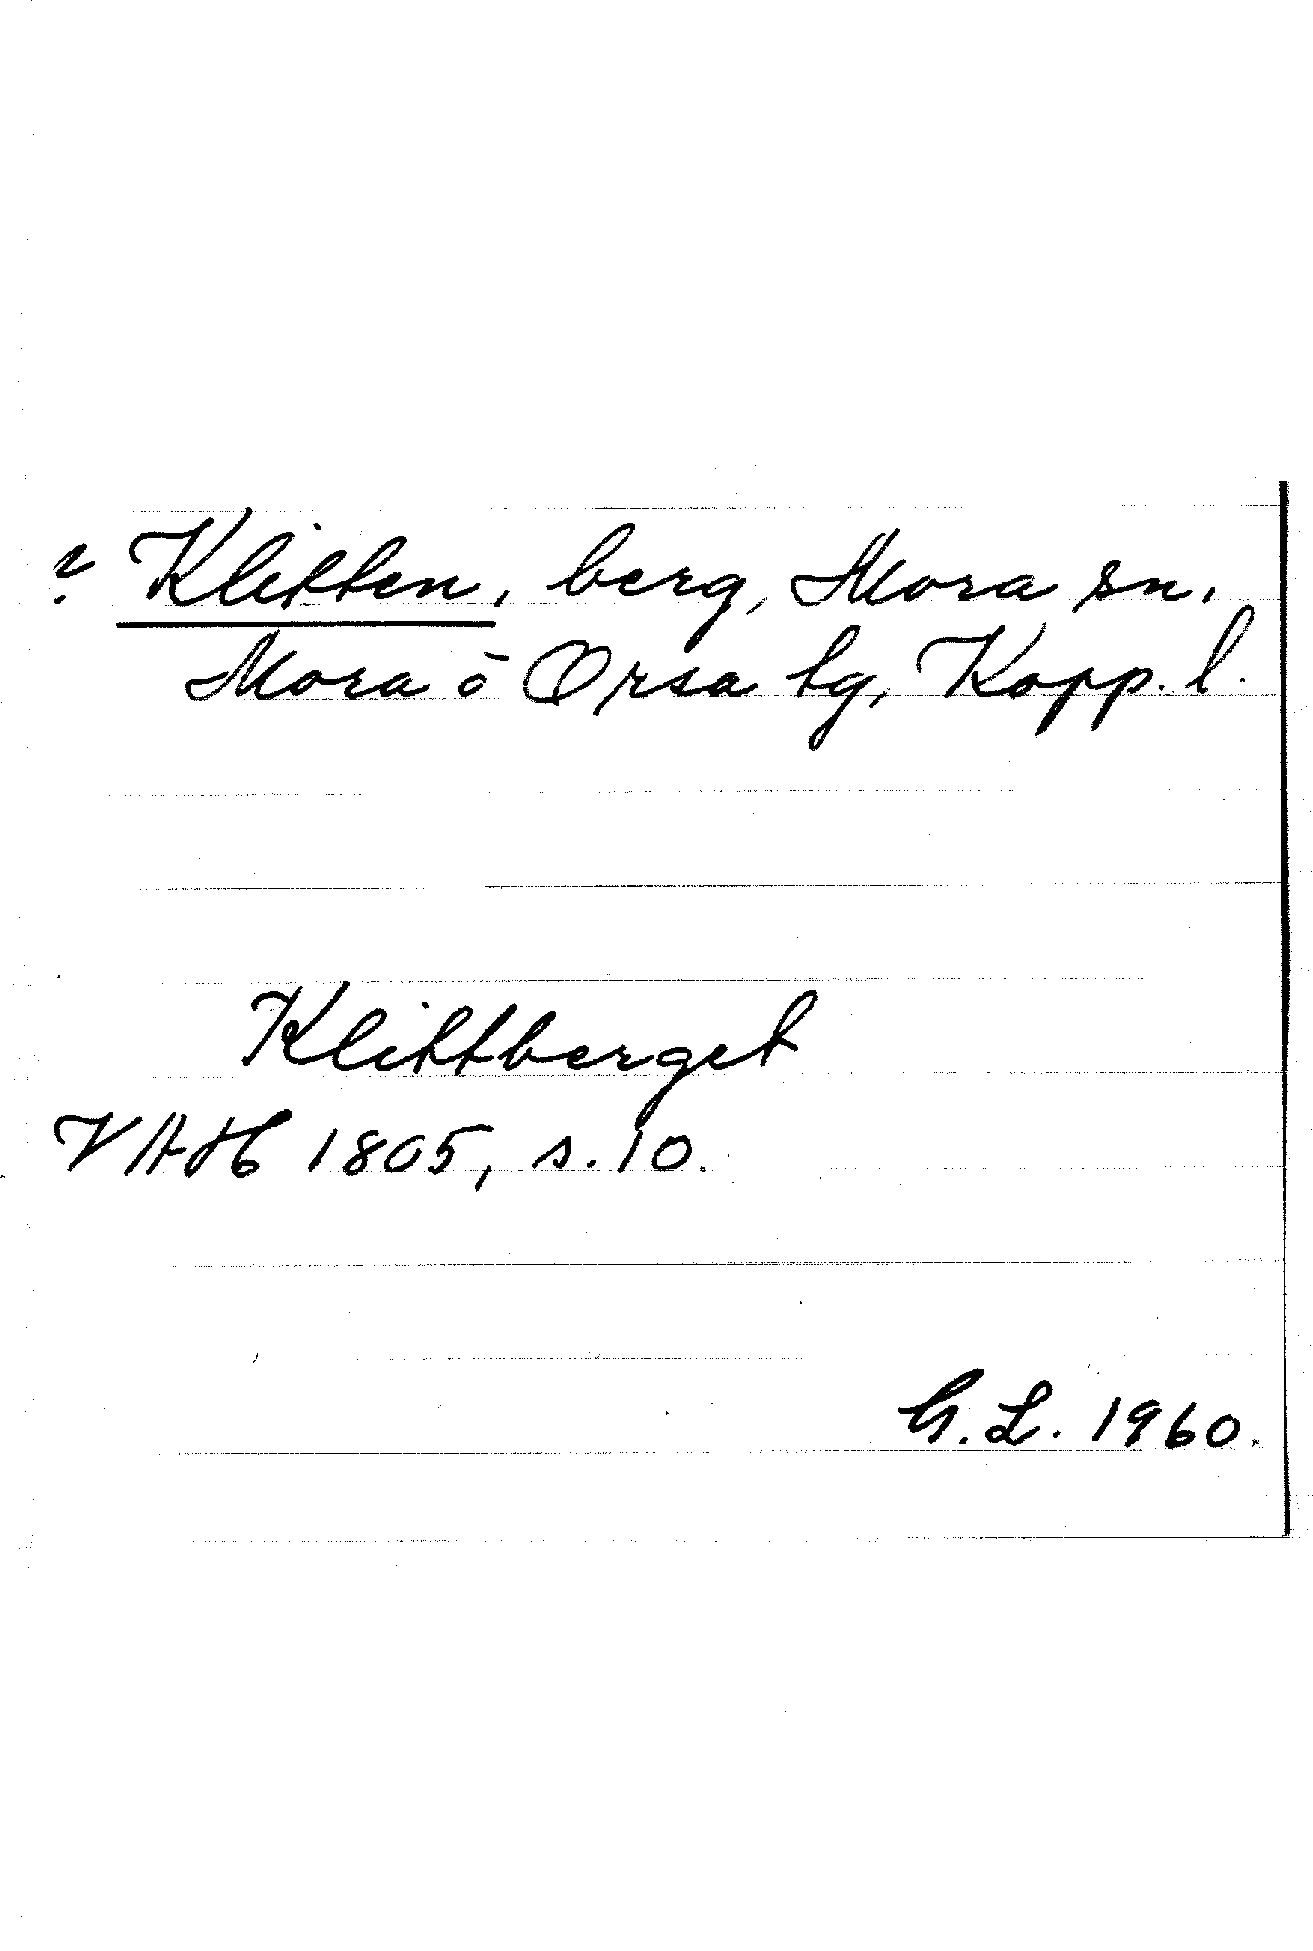 ? Klitten, berg, Mora sn.
Mora o Orsa tg, Kopp. l.
Klittberget
VAH 1805, s. 10.
G. L. 1960.